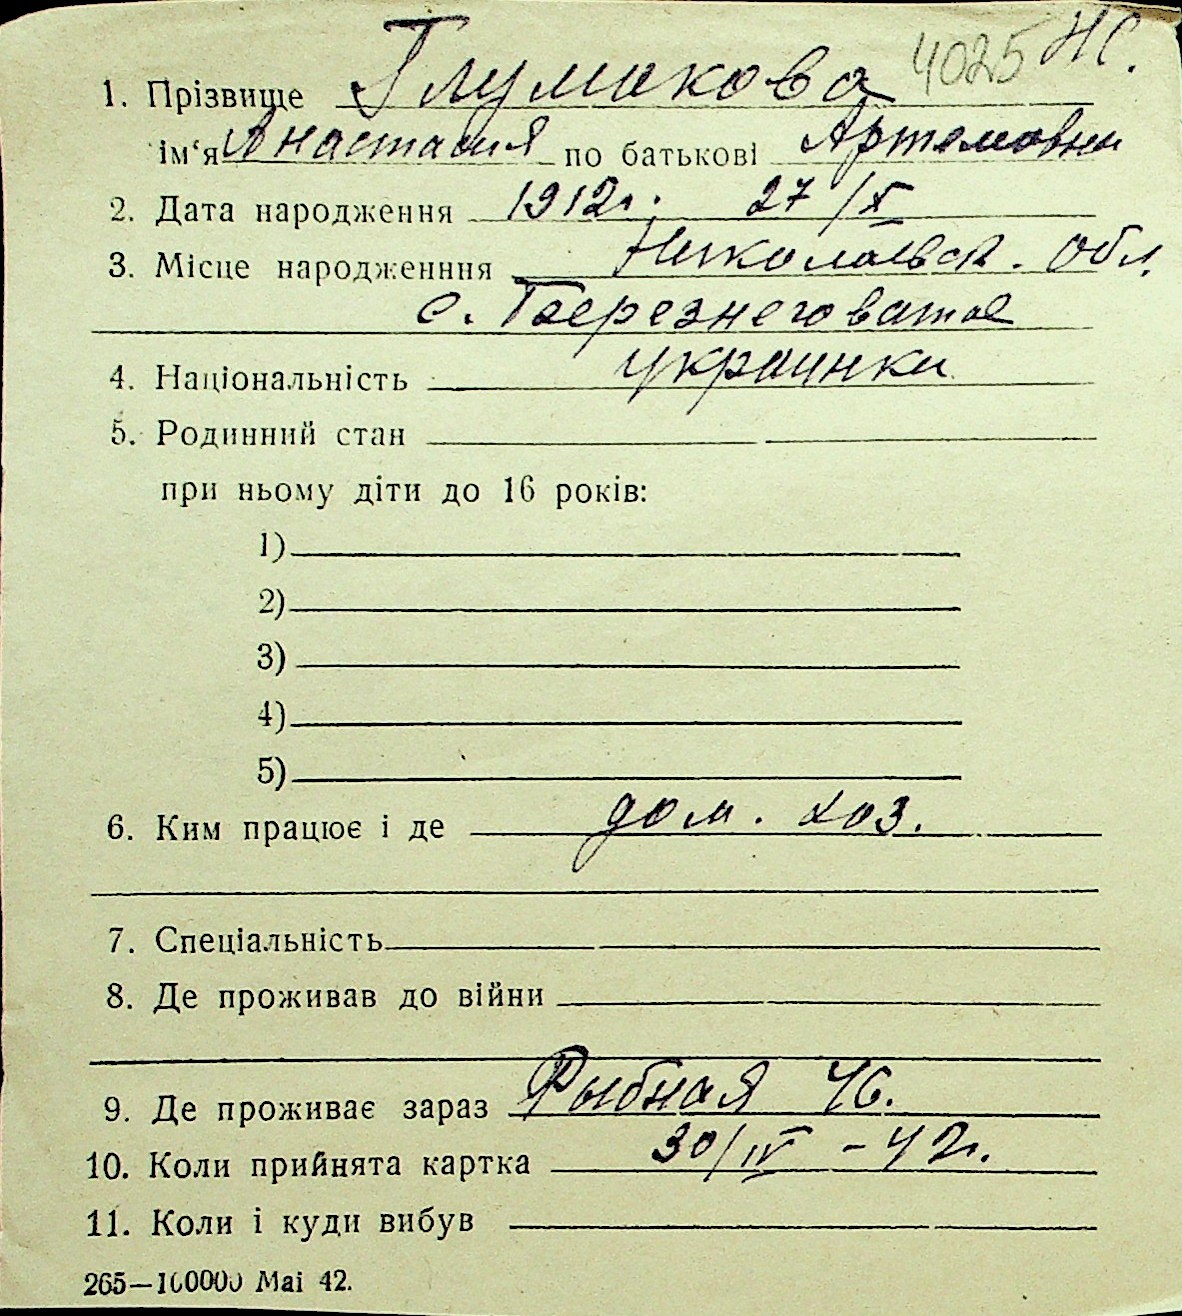 4025 НС.
1. Прізвище Глумакова
ім‘я Анастасия по батькові Артемовна
2. Дата народження 1912г. 27/X
3. Місце народженння Николаевск. обл.
с. Березнеговатое
4. Національність украинка
5. Родинний стан
при ньому діти до 16 років:
1)
2)
3)
4)
5)
6. Ким працює і де дом. хоз.
7. Спеціальність
8. Де проживав до війни
9. Де проживає зараз Рыбная 46.
10. Коли прийнята картка 30/IV – 42г.
11. Коли і куди вибув
265—100000 Маі 42.